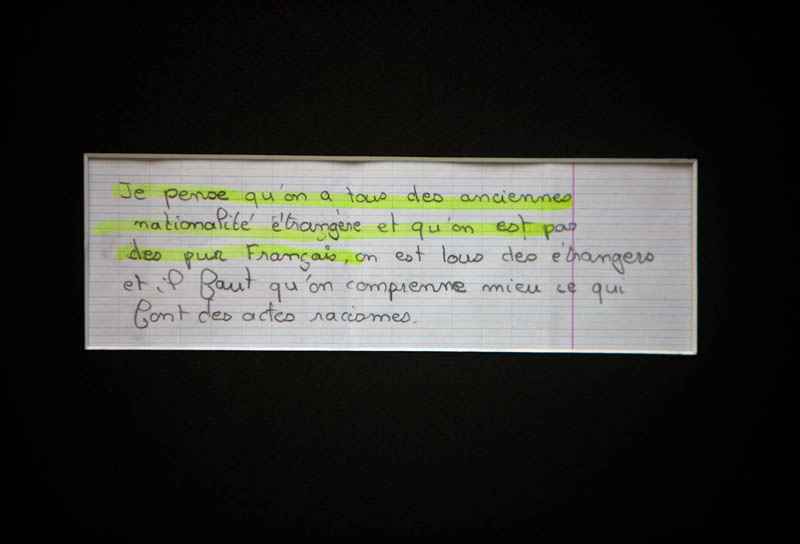 Je pense qu'on a tous des anciennes
nationalité étrangère et qu'on est pas
des pur Français, on est tous des étrangers
et il faut qu'on comprenne mieu ce qui
font des actes racismes.